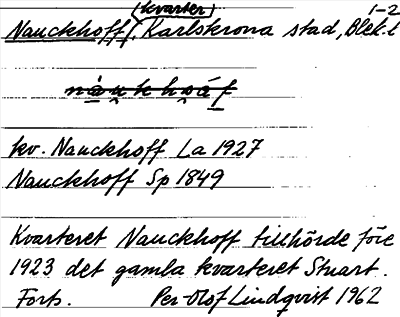 (kvarter) 1-2
Nauckhoff, Karlskrona stad, Blek. l
kv. Nauckhoff La 1927
Nauckhoff Sp 1849
Kvarteret Nauckhoff tillhörde före
1923 det gamla kvarteret Stuart.
Forts. Per-Olof Lindqvist 1962